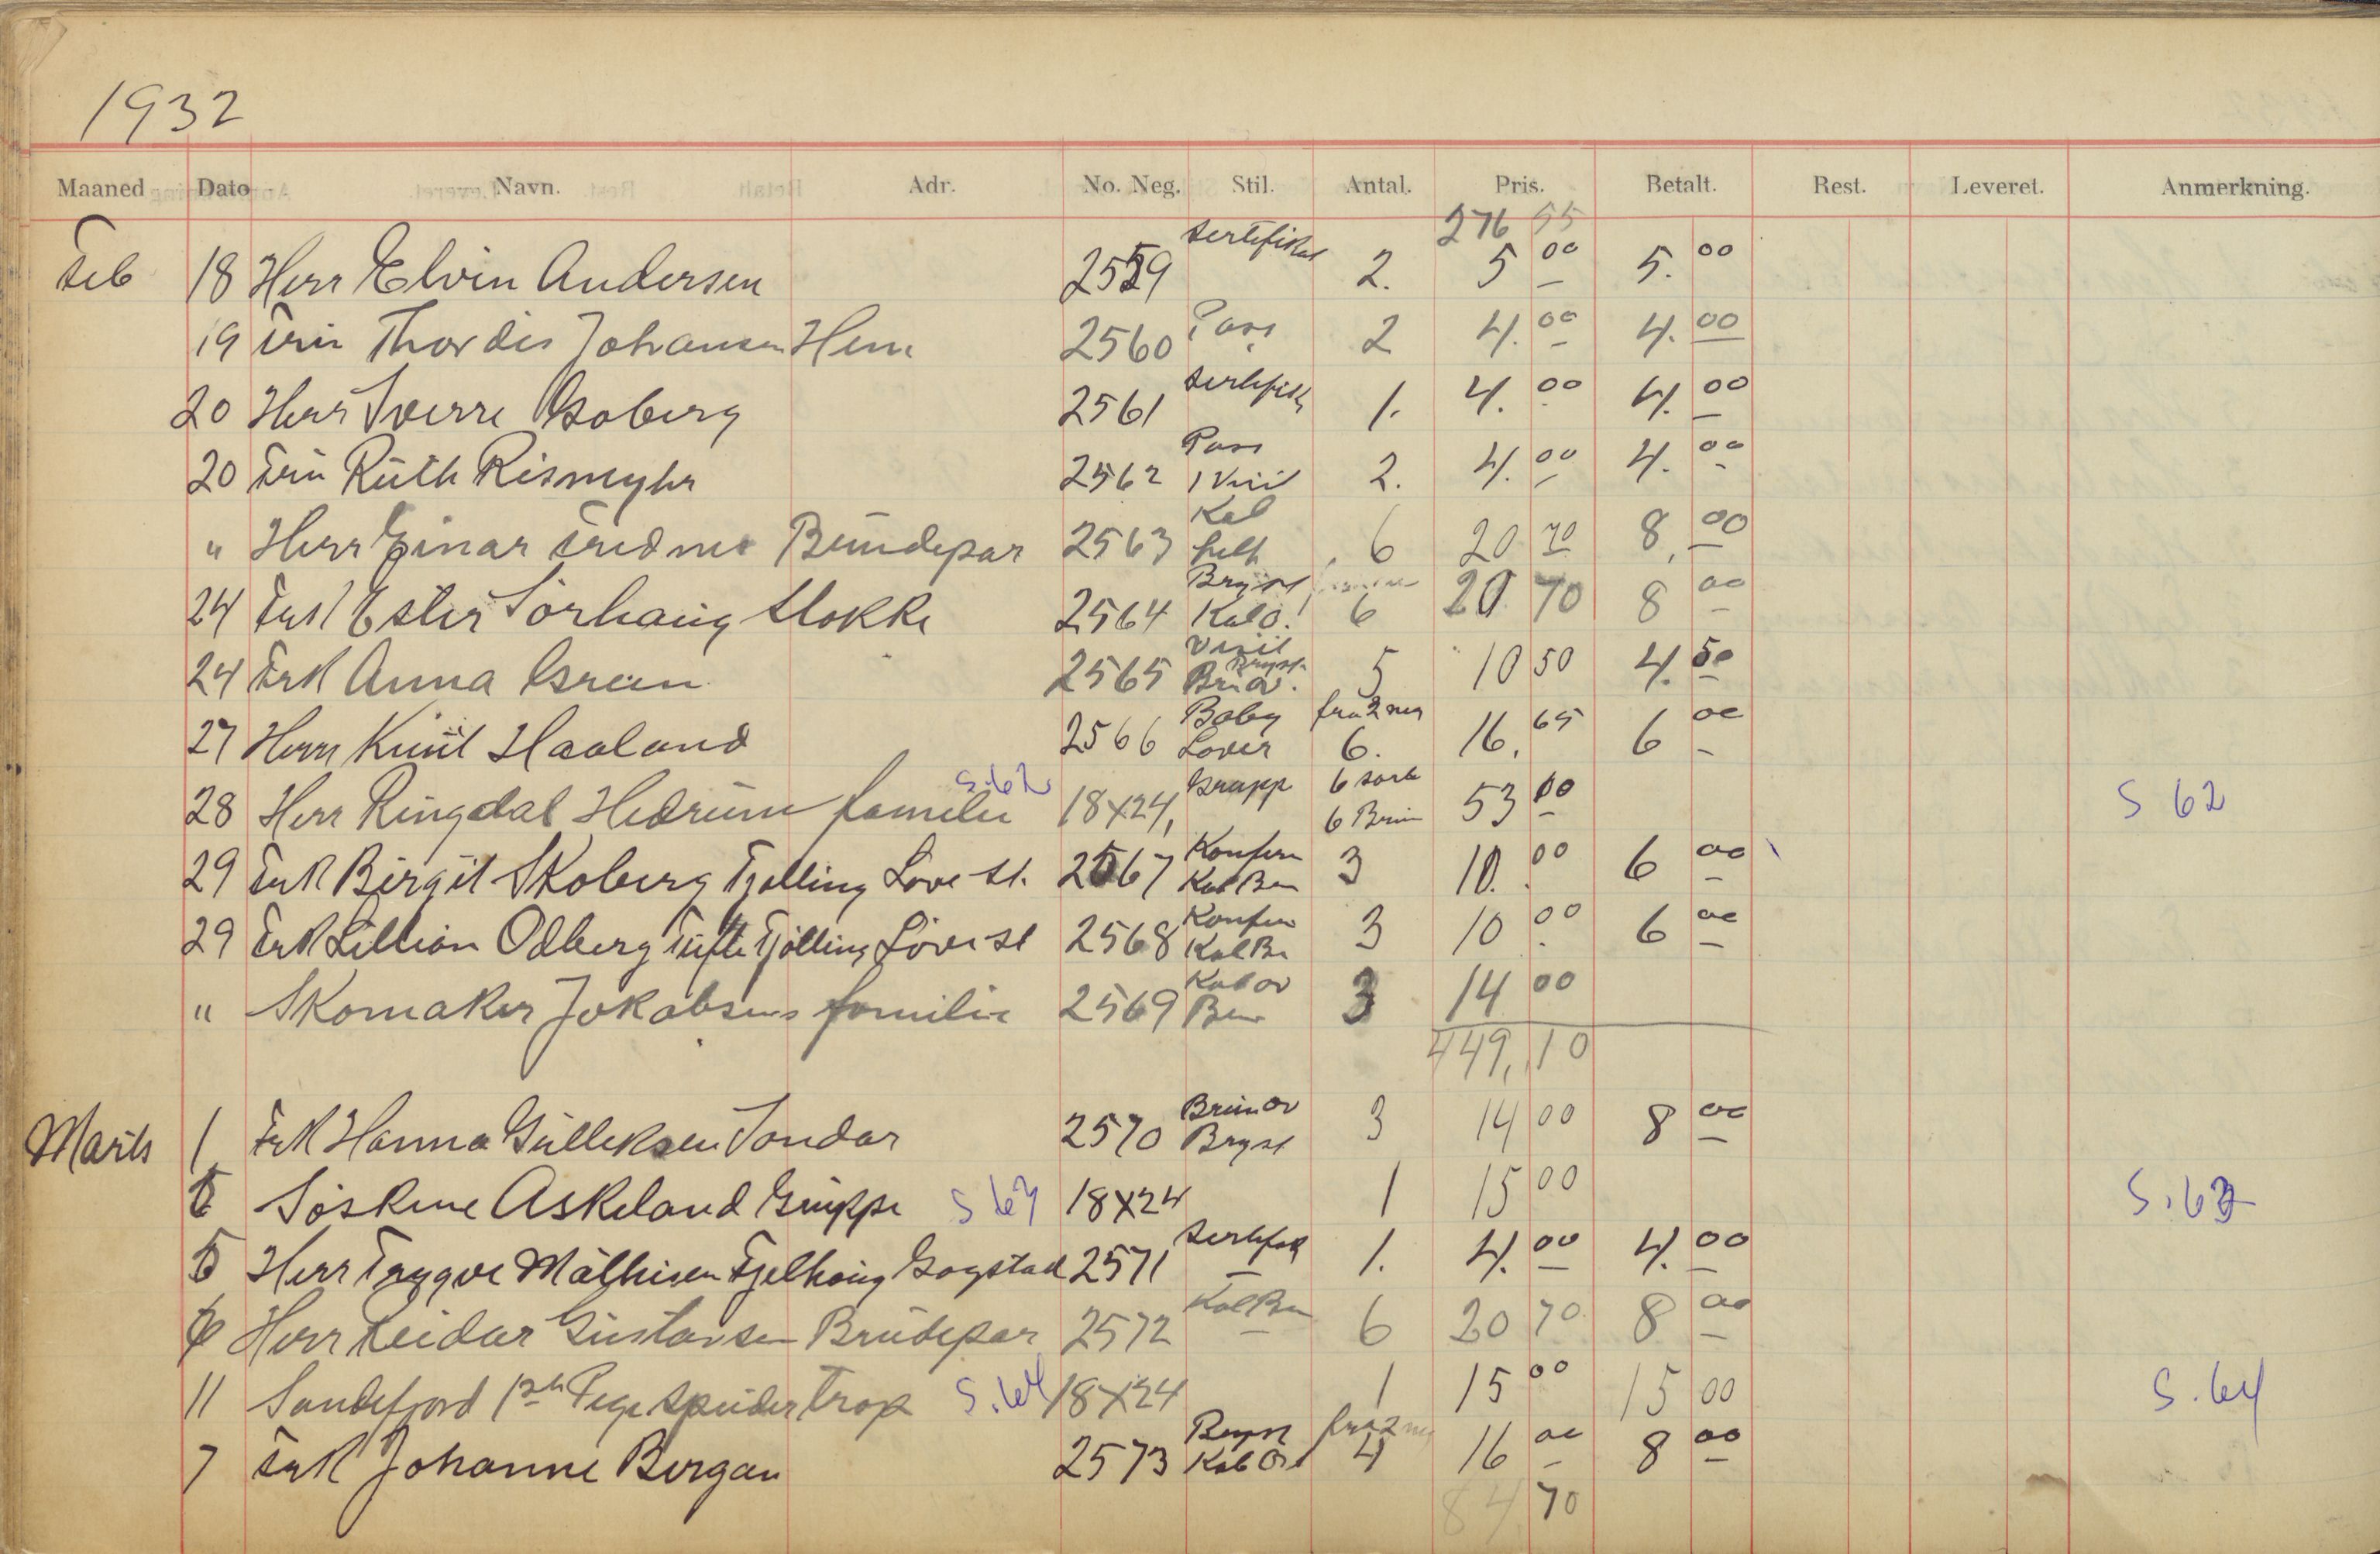 1932
Maaned Dato Navn. Adr. No. Neg. Stil. Antal. Pris. Betalt. Rest. Leveret. Anmerkning.
276 55
Feb 18 Herr Elvin Andersen 2559 Sertifikat 2. 5 00 5. 00
19 Thordis Johansen Hem 2560 Pass 2 4. 00 4. 00
20 Herr Sverre Goberg 2561 1. 4. 00 4. 00
20 Ruth Rismyhr 2562 Pass 1 Visit 2. 4. 00 4. 00
" Herr Einar Brudepar 2563 Kab helt 6 20 70 8, 00
24 Frk Ester Sørhaug Stokke 2564 Bryst Kab 6 20 70 8 00
24 Frk Anna Green 2565 Visit Bryst 5 10 50 4. 50
27 Herr Knut Haaland 2566 Baby fra 2 neg 6. 16. 65 6 00
28 Herr Ringdal Hedrum familie S.62 18x24, Grupp 6 sort 6 Brun 53 00 S 62
29 Frk Birgit Skoberg Tjølling Løve st. 2567 Konfirm Kab Ben 3 10. 00 6 00
29 Frk Lillian Odberg Tufte Tjølling Løve st 2568 Konfir Kab Be 3 10 00 6 00
" Skomaker Jokabsens familie 2569 Kab ov Ben 3 14 00
449,10
Marts 1 Frk Hanna Gulleksen Sondar 2570 Brun ov Bryst 3 14 00 8 00
5 Søskene Askeland Gruppe S 63 18x24 1 15 00 S.63
5 Herr Trygve Mathisen Fjellhaug Gogstad 2571 Sertifik 1. 4. 00 4. 00
6 Herr Reidar Gustavsen Brudepar 2572 Kab Ben 6 20 70 8 00
11 Sandefjord 1ste Pige speider trop S.64 18x24 1 15 00 15 00 S.64
7 Frk Johanne Bergan 2573 Bryst Kab fra 2 neg 4 16 00 8 00
84 70